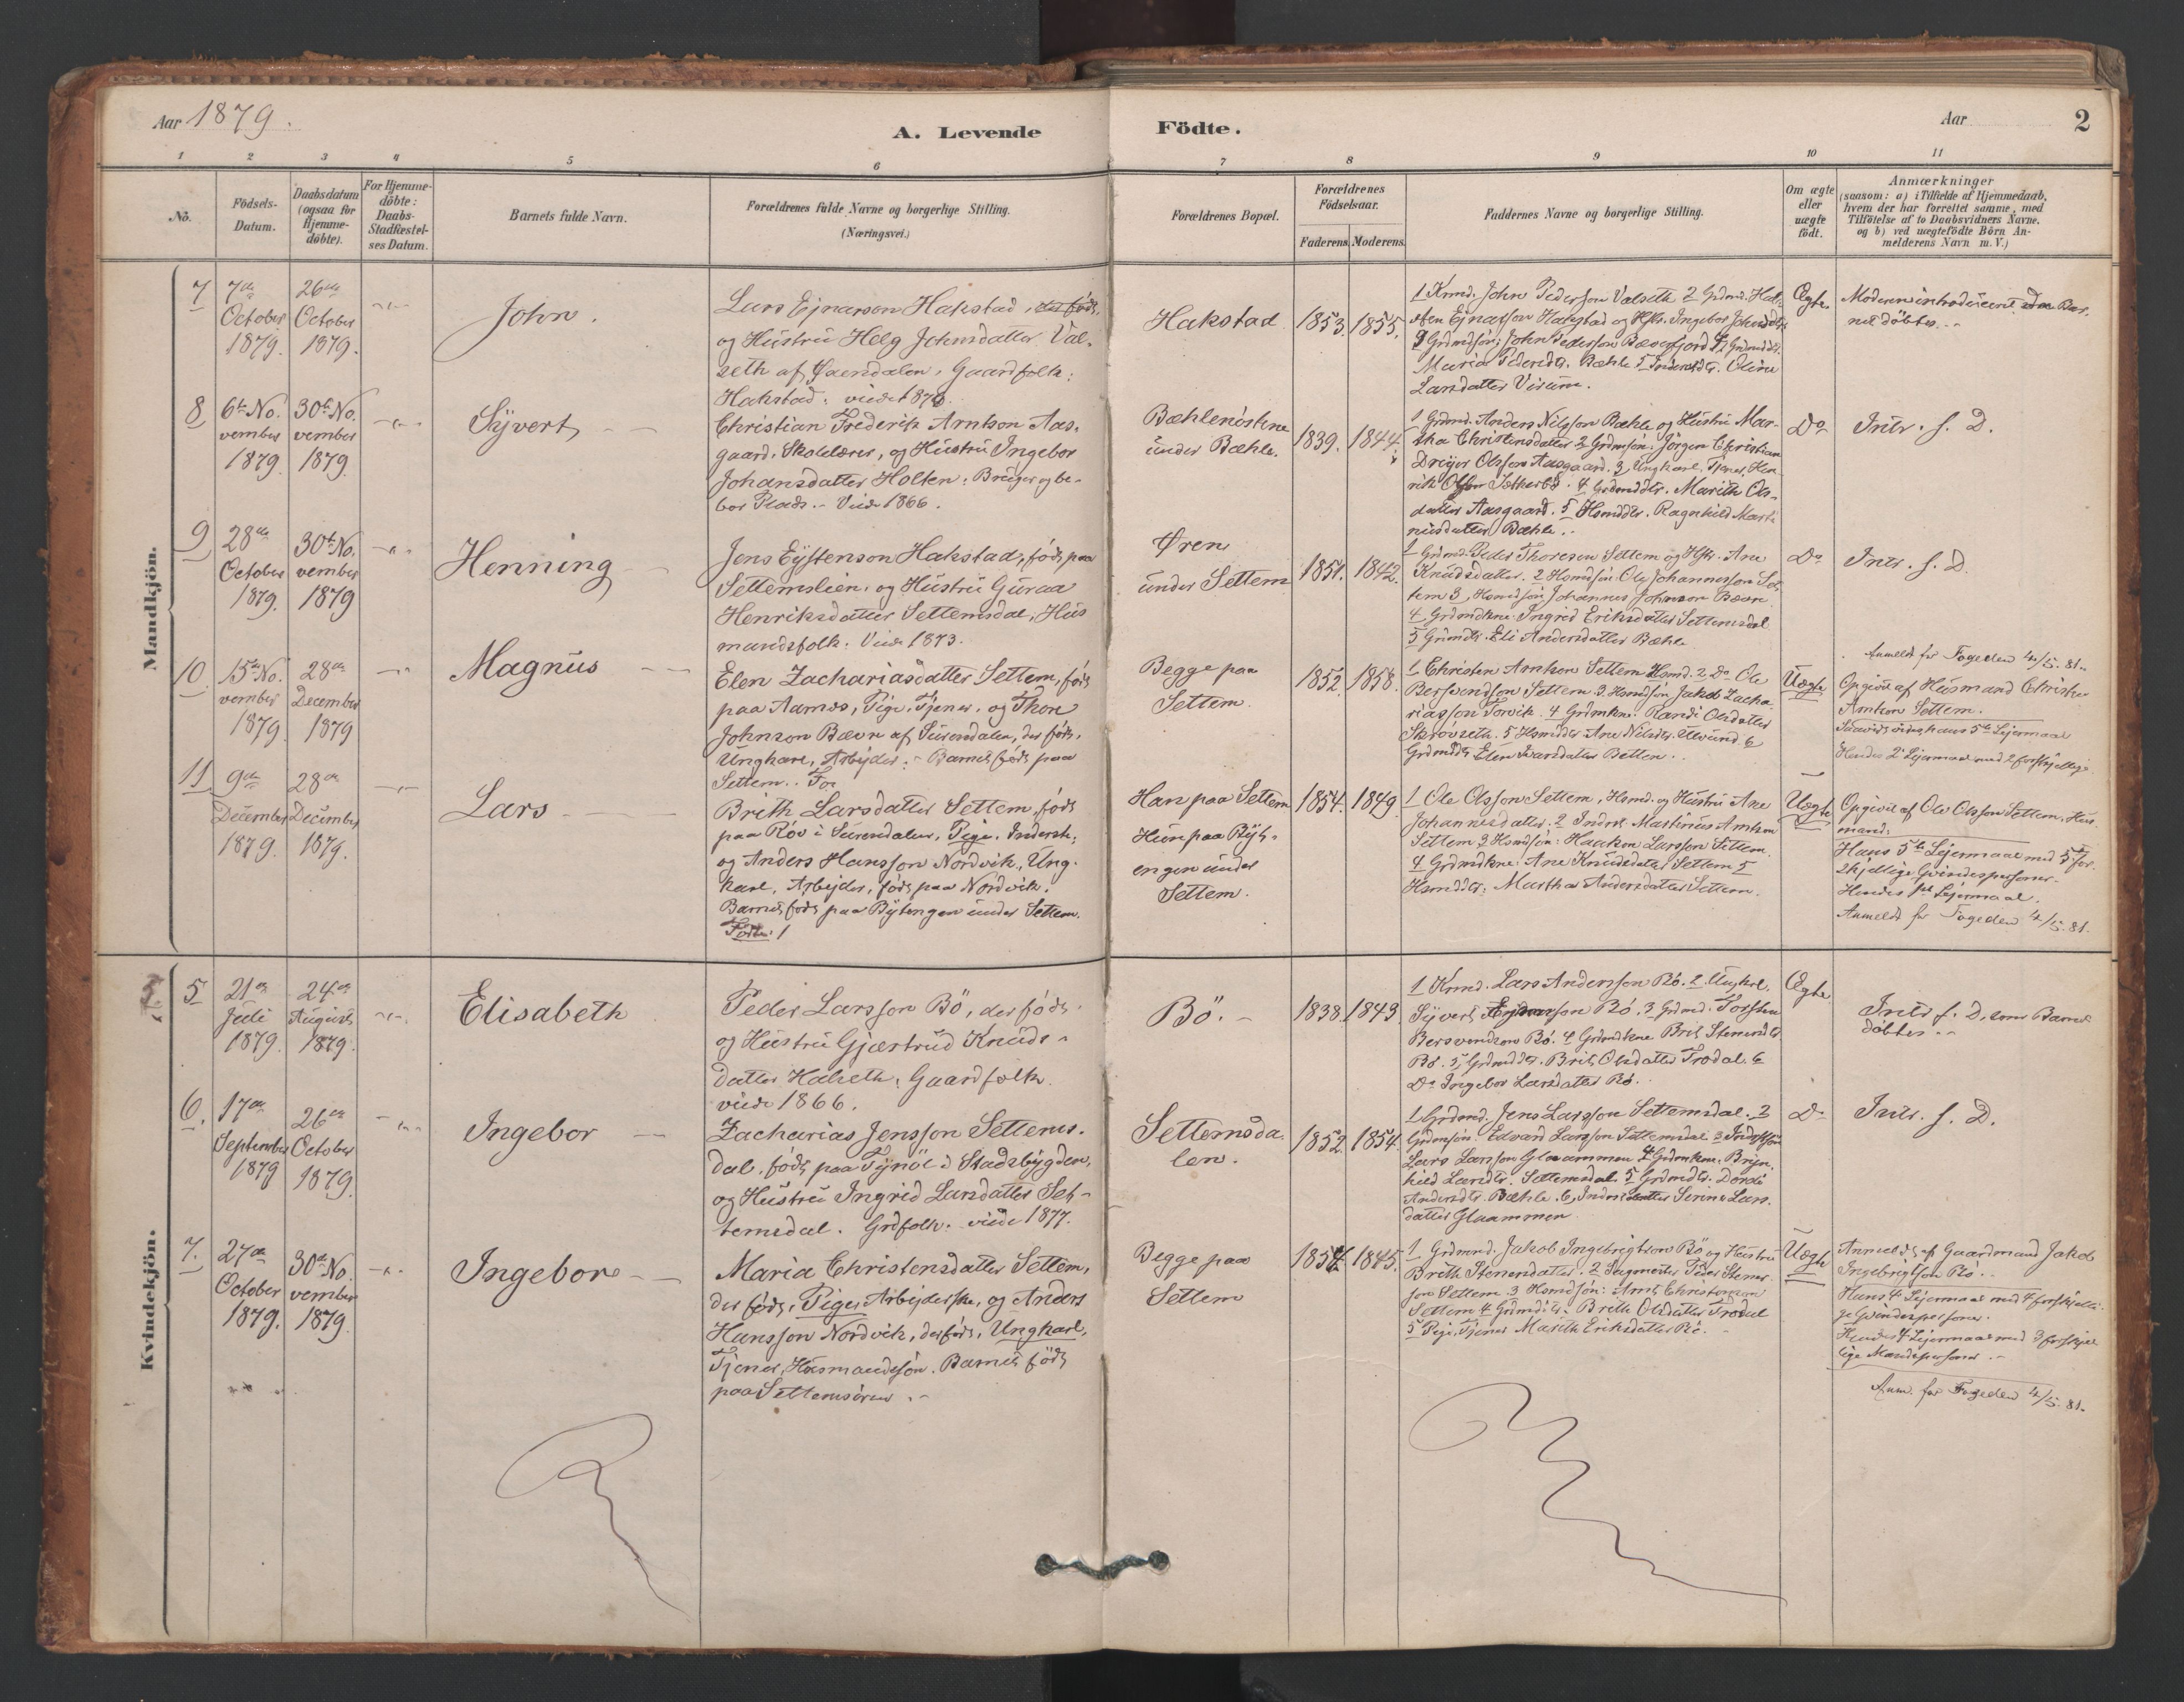 Aar 1879.
A. Levende Födte.
Aar
2
1 2 3 4 5 6 7 8 9 10 11
No.
Födsels-
Datum.
Daabsdatum
(ogsaa for
Hjemme-
döbte).
For Hjemme-
döbte:
Daabs-
Stadfæstel-
ses Datum.
Barnets fulde Navn.
Forældrenes fulde Navne og borgerlige Stilling.
(Næringsvei.)
Forældrenes Bopæl.
Forældrenes
Födselsaar.
Faderens. Moderens.
Faddernes Navne og borgerlige Stilling.
Om ægte
eller
uægte
födt.
Anmærkninger
(saasom: a) i Tilfælde af Hjemmedaab,
hvem der har forrettet samme, med
Tilföielse af to Daabsvidners Navne.
og b) ved uægtefödte Börn An-
melderens Navn m. V.)
Mandkjön.
7
7de
October
1879.
26de
October
1879.
John.
Lars Ejnarson Hakstad, der föds,
og Hüstrü Helg Johnsdatter Val-
seth af Øxendalen, Gaardfolk:
Hakstad: viede 1878.
Hakstad
1853. 1855.
1 Krmd. John Pedersson Valseth 2 Grdmd. Hal-
sten Ejnarsson Hakstad og Hftr. Ingebor Johnsdtr
3 Grdmdsön: John Pedersson Bæverfjord 4 Grdmddtr.
Maria Pedersdtr. Bæhle 5 Inderstdtr. Oline
Larsdatter Visüm.
Ægte.
Moderen introduceret da Bar-
net döbtes.
8
6te No-
vember
1879.
30te No-
vember
1879
Syvert
Christian Frederik Arntson Aas-
gaard, Skolelærer, og Hüstrü Ingebor
Johansdatter Holten. Brüger og be-
bor Plads. Viede 1866.
Bæhlenöstene
ünder Bæhle.
1839. 1844.
1 Grdmd. Anders Nilsson Bæhle og Hüstrü Mar-
tha Christensdatter 2 Grdmsön: Jörgen Christian
Dreyer Olsson Aasgaard. 3 Ungkarl, Tjener, Hen-
rik Olsson Sætherbö. 4 Grdmddtr. Marith Ols-
datter Aasgaard. 5 Hsmddtr. Ragnhild Marti-
nüsdatter Bæhle.
Do
Intr. s. D.
9
28de
October
1879.
30te No-
vember
1879
Henning
Jens Eystenson Hakstad, föds paa
Settemslien, og Hüstrü Güraa
Henriksdatter Settemsdal, Hüs-
mandsfolk: Viede 1873.
Øren
ünder Settem
1851. 1842.
1 Grdmd. Peder Thoresen Settem og Hftr. Ane
Knüdsdatter. 2 Hsmdsön: Ole Johannesson Set-
tem 3 Hsmdsön Johannes Johnson Bævre
4 Grdmdkne: Ingrid Eriksdatter Settemsdal
5 Grdmdtr. Eli Andersdatter Bæhle
Do
Intr. s. D.
10.
15de No-
vember
1879.
28de
December
1879
Magnüs
Elen Zachariasdatter Settem, föds
paa Aarnes, Pige, Tjener, og Thore
Johnson Bævre af Sürendalen, der föds,
Ungkarl, Arbejder: Barnet föds paa
Settem.
Begge paa
Settem.
1852. 1858.
1 Christen Arntson Settem Hsmd. 2 Do Ole
Bersvendson Settem 3 Hsmdsön Jakob Zacha-
riasson Torvik 4 Grdmkne: Randi Olsdatter
Skrövseth 5 Hsmddtr Ane Nilsdtr. Ulvünd 6
Grdmddtr Elen Ivarsdatter Betten.
Üægte
Anmeldt for Fogeden 4/5. 81.
Opgivet af Hüsmand Christen
Arntson Settem.
Saavidt vides hans 5te Lejermaal
Hendes 2det Lejermaal med 2 forskjellige.
11
9de
December
1879.
28de
December
1879.
Lars
Brith Larsdatter Settem, föds
paa Röv i Sürendalen, Pige, Inderst,
og Anders Hansson Nordvik, Üng-
karl, Arbejder, föds paa Nordvik.
Barnet föds paa Bytengen ünder Settem.
Han paa Settem
Hün paa Byt-
engen ünder
Settem.
1854. 1849.
1 Ole Olsson Settem, Hsmd. og Hüstrü Ane
Johannesdatter. 2 Inderst. Martinüs Arntson
Settem 3 Hsmdsön: Haakon Larsson Settem.
4 Grdmdkne: Ane Knüdsdatter Settem 5
Hsmddtr: Martha Andersdatter Settem.
Üægte
Opgivet af Ole Olsson Settem, Hüs-
mand:
Hans 5te Lejermaal med 5 for-
skjellige Qvindespersoner.
Hendes 1ste Lejermaal.
Anmeldt for Fogeden 4/5. 81.
Kvindekjön.
5
21de
Jüli
1879.
24de
Aügüst
1879.
Elisabeth
Peder Larsson Bö, der föds.
og Hüstrü Gjærtrüd Knüds-
datter Halseth, Gaardfolk.
viede 1866.
Bö.
1838. 1843
1 Krmd. Lars Andersson Bö. 2 Üngkrl.
Syvert Ejnarsson Bö, 3 Grdmd. Torsten
Bersvendsen Bö. 4 Grdmdkne Brit Stenersdtr
Bö. 5 Grdmddtr. Brit Olsdatter Trodal. 6
Do Ingebor Larsdatter Bö.
Ægte
Intr. s. D. som Barnet
döbtes.
6.
17de
September
1879
26de
October
1879.
Ingebor
Zacharias Jensson Settems-
dal, föds paa Tynöl i Stadsbygden,
og Hüstrü Ingrid Larsdatter Set-
temsdal. Grdfolk. viede 1877.
Settemsda-
len.
1852. 1854.
1 Grdmd. Jens Larsson Settemsdal. 2
Grdmsön. Edvard Larsson Settemsdal 3 Indstsön
Lars Larsson Glaammen 4 Grdmkne. Bryn-
hild Larsdtr. Settemsdal. 5 Grdmdtr. Dordi
Andersdtr. Bæhle. 6 Inderstdatter Serine Lars-
datter Glaammen
Do
Intr. s. D.
7.
27de
October
1879.
30te No-
vember
1879
Ingebor
Maria Christensdatter Settem,
der föds, Pige, Arbejderske, og Anders
Hansson Nordvik, der föds, Üngkarl,
Tjener, Hüsmandssön. Barnet föds
paa Settemsören.
Begge paa
Settem
1854. 1845.
1 Grdmnd. Jakob Ingebrigtson Bö og Hüstrü
Brith Stenersdatter. 2 Ungmester Peder Stener-
son Settem 3 Hsmdsön: Arnt Christenson
Settem 4 Grdmddtr. Brith Olsdatter Trodal
5 Pige, Tjener Marith Eriksdatter Bö.
Üægte
Anmeldt af Gaardmand Jakob
Ingebrigtson Bö.
Hans 4 Lejermaal med 4 forskjelli-
ge Qvindespersoner.
Hendes 4 Lejermaal med 3 forskjel-
lige Mandspersoner.
Anm. for Fogeden 4/5. 81.